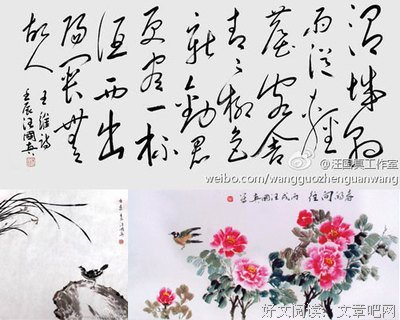 渭城朝
雨浥轻
塵客舍
青々柳色
新勸君
更尽一杯
酒西出
陽関無
故人
王维诗
壬辰汪国真
@汪国真工作室
weibo.com/wangguozhenguanwang
春的问候 丙戌汪国真
好文阅读：文章吧网